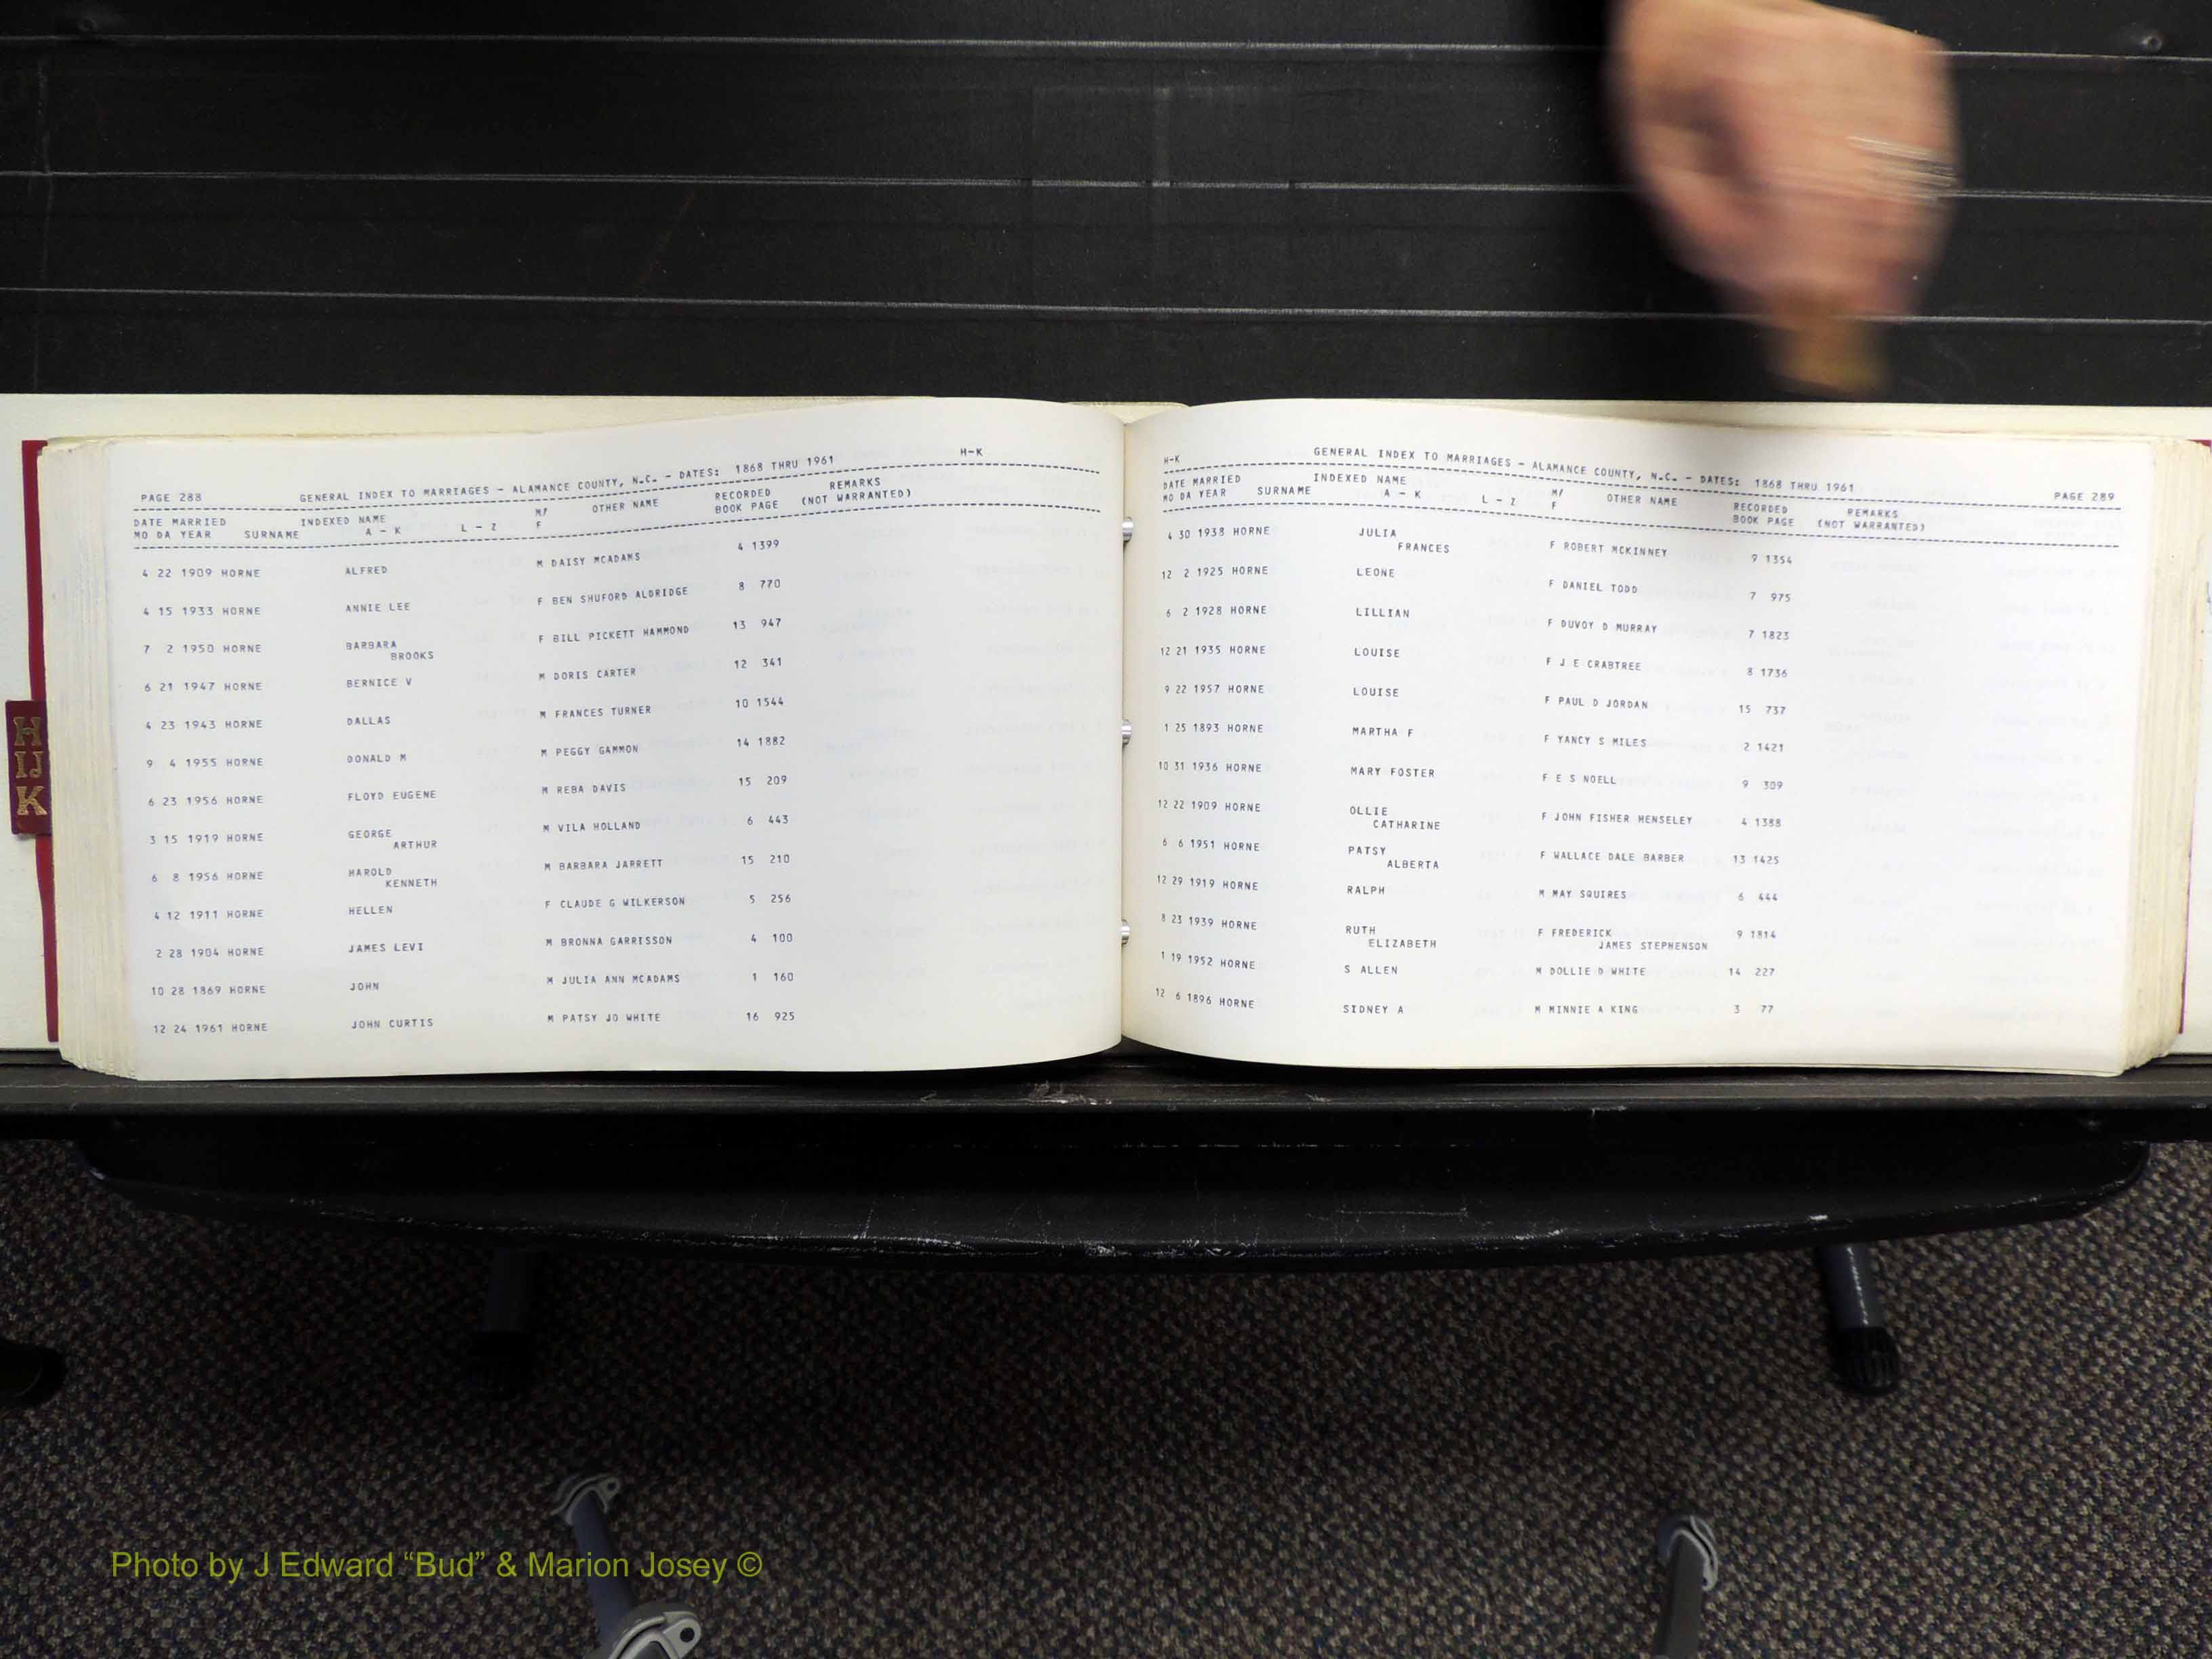 PAGE 288 GENERAL INDEX TO MARRIAGES - ALAMANCE COUNTY, N.C. - DATES: 1868 THRU 1961 H-K
DATE MARRIED INDEXED NAME M/ OTHER NAME RECORDED REMARKS
MO DA YEAR SURNAME A - K L - Z F BOOK PAGE (NOT WARRANTED)
4 22 1909 HORNE ALFRED M DAISY MCADAMS 4 1399
4 15 1933 HORNE ANNIE LEE F BEN SHUFORD ALDRIDGE 8 770
7 2 1950 HORNE BARBARA F BILL PICKETT HAMMOND 13 947
BROOKS
6 21 1947 HORNE BERNICE V M DORIS CARTER 12 341
4 23 1943 HORNE DALLAS M FRANCES TURNER 10 1544
9 4 1955 HORNE DONALD M M PEGGY GAMMON 14 1882
6 23 1956 HORNE FLOYD EUGENE M REBA DAVIS 15 209
3 15 1919 HORNE GEORGE M VILA HOLLAND 6 443
ARTHUR
6 8 1956 HORNE HAROLD M BARBARA JARRETT 15 210
KENNETH
4 12 1911 HORNE HELLEN F CLAUDE G WILKERSON 5 256
2 28 1904 HORNE JAMES LEVI M BRONNA GARRISSON 4 100
10 28 1869 HORNE JOHN M JULIA ANN MCADAMS 1 160
12 24 1961 HORNE JOHN CURTIS M PATSY JO WHITE 16 925
H-K GENERAL INDEX TO MARRIAGES - ALAMANCE COUNTY, N.C. - DATES: 1868 THRU 1961 PAGE 289
DATE MARRIED INDEXED NAME M/ OTHER NAME RECORDED REMARKS
MO DA YEAR SURNAME A - K L - Z F BOOK PAGE (NOT WARRANTED)
4 30 1938 HORNE JULIA F ROBERT MCKINNEY 9 1354
FRANCES
12 2 1925 HORNE LEONE F DANIEL TODD 7 975
6 2 1928 HORNE LILLIAN F DUVOY D MURRAY 7 1823
12 21 1935 HORNE LOUISE F J E CRABTREE 8 1736
9 22 1957 HORNE LOUISE F PAUL D JORDAN 15 737
1 25 1893 HORNE MARTHA F F YANCY S MILES 2 1421
10 31 1936 HORNE MARY FOSTER F E S NOELL 9 309
12 22 1909 HORNE OLLIE F JOHN FISHER HENSELEY 4 1388
CATHARINE
6 6 1951 HORNE PATSY F WALLACE DALE BARBER 13 1425
ALBERTA
12 29 1919 HORNE RALPH M MAY SQUIRES 6 444
8 23 1939 HORNE RUTH F FREDERICK 9 1814
ELIZABETH JAMES STEPHENSON
1 19 1952 HORNE S ALLEN M DOLLIE D WHITE 14 227
12 6 1896 HORNE SIDNEY A M MINNIE A KING 3 77
H
IJ
K
Photo by J Edward “Bud” & Marion Josey ©